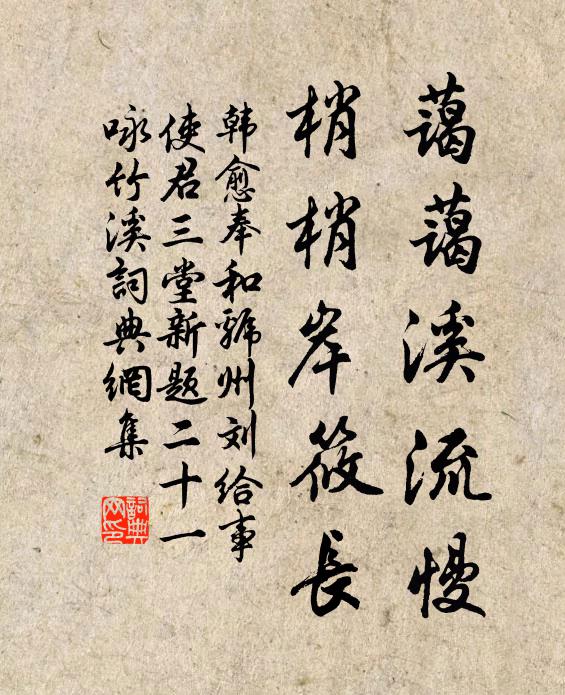 藹藹溪流慢
梢梢岸筱長
韩愈奉和虢州刘给事
使君三堂新题二十一
咏竹溪詞典網集
詞典
网印